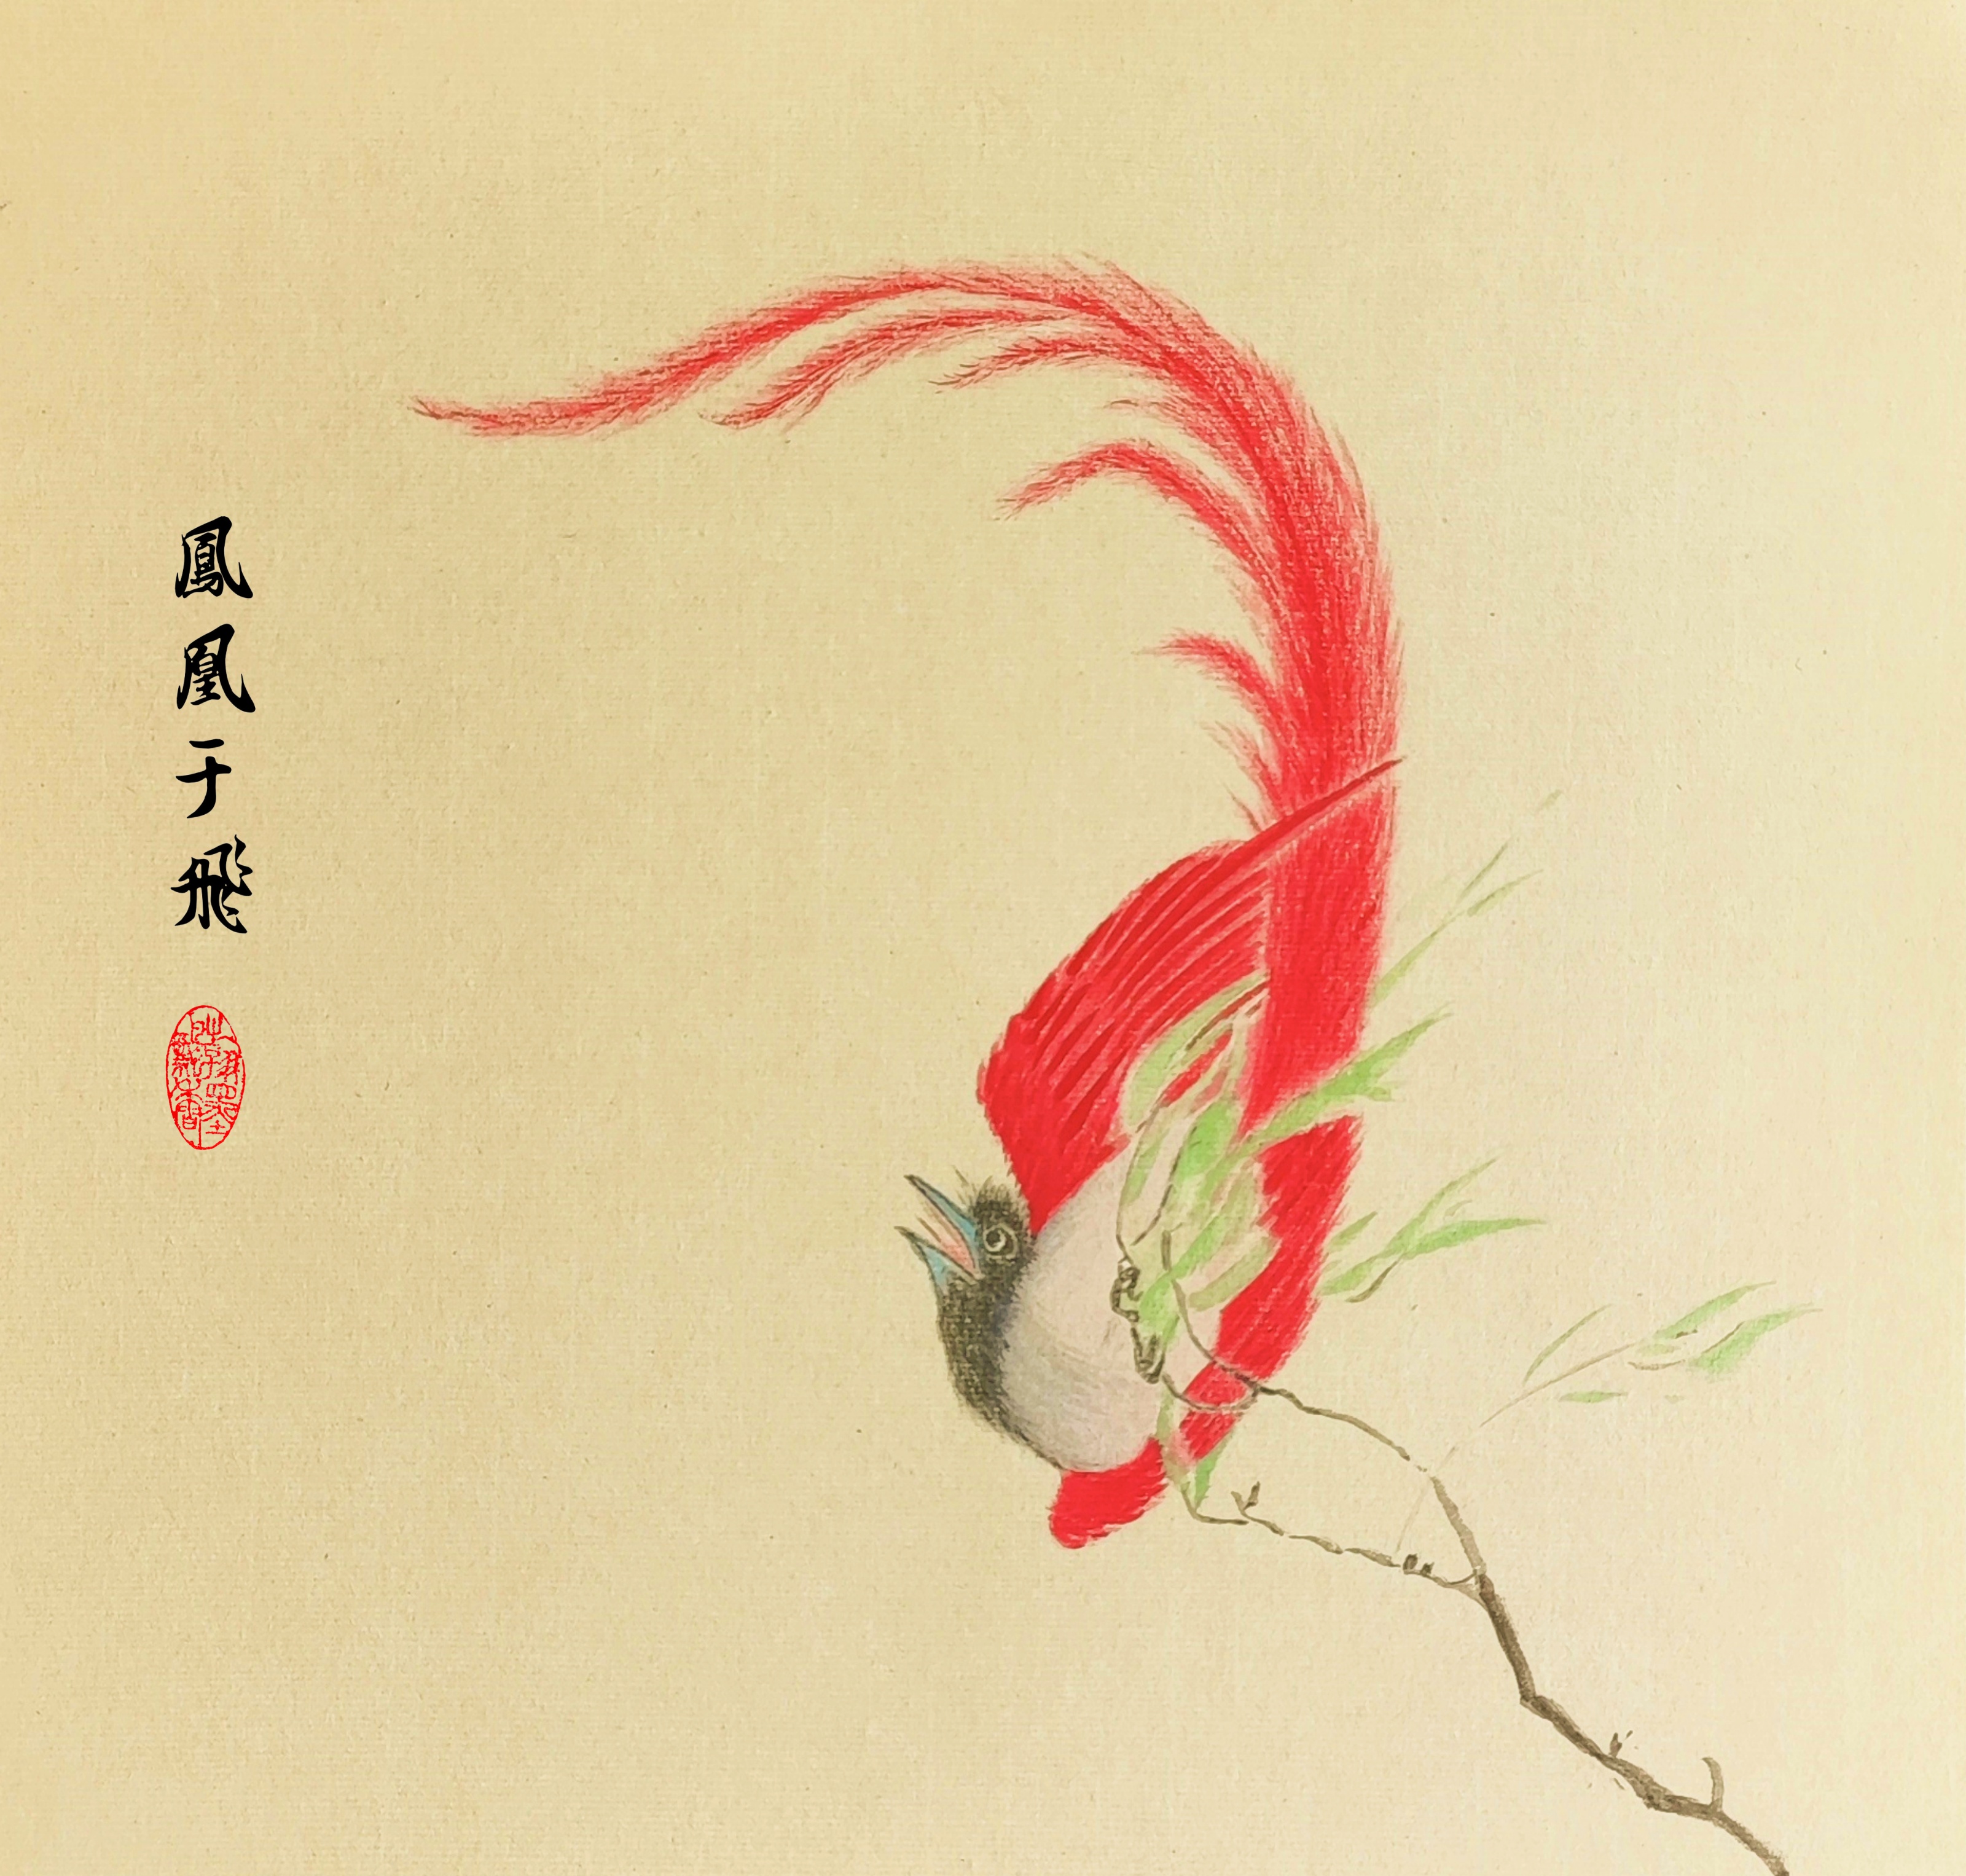 鳳凰于飛